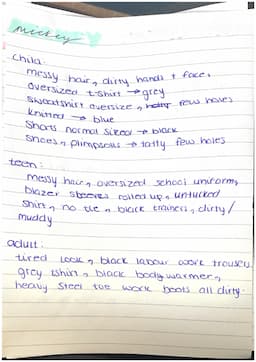 mickey
Child:
messy hair, dirty hands + face.
oversized t-shirt → grey
sweatshirt oversize, few holes
knitted → blue
shorts normal sized → black
shoes, plimpsolls → tatty few holes
teen:
messy hair, oversized school uniform,
blazer sleeves rolled up, untucked
shirt, no tie, black trainers, dirty/
muddy
adult:
tired look, black labour work trousers
grey tshirt, black body warmer,
heavy steel toe work boots all dirty.